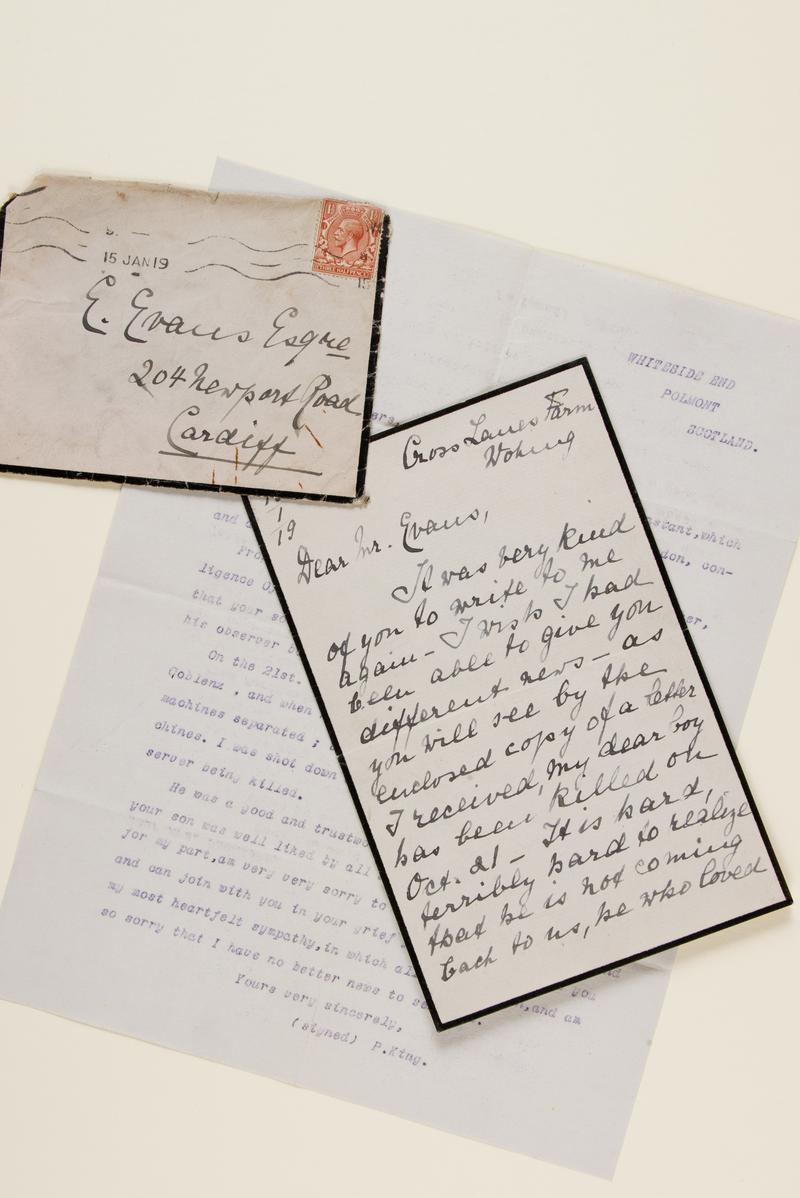 15 JAN 19
15
E. Evans Esqre
204 Newport Road
Cardiff
Cross Lanes Farm
Woking
1
19
Dear Mr. Evans,
It was very kind
of you to write to me
again – I wish I had
been able to give you
different news – as
you will see by the
enclosed copy of a letter
I received, my dear boy
has been killed on
Oct. 21 – It is hard,
terribly hard to realize
that he is not coming
back to us, he who loved
WHITESIDE END
POLMONT
SCOTLAND.
stant, which
and
don, con-
ligence Of
that your so
his observer
On the 21st.
Coblenz , and when
machines separated ;
chines. I was shot down
server being killed.
He was a good and trustwo
your son was well liked by all
for my part, am very very sorry to
and can join with you in your grief
my most heartfelt sympathy, in which al
you
so sorry that I have no better news to se
, and am
Yours very sincerely,
(signed) P. King.